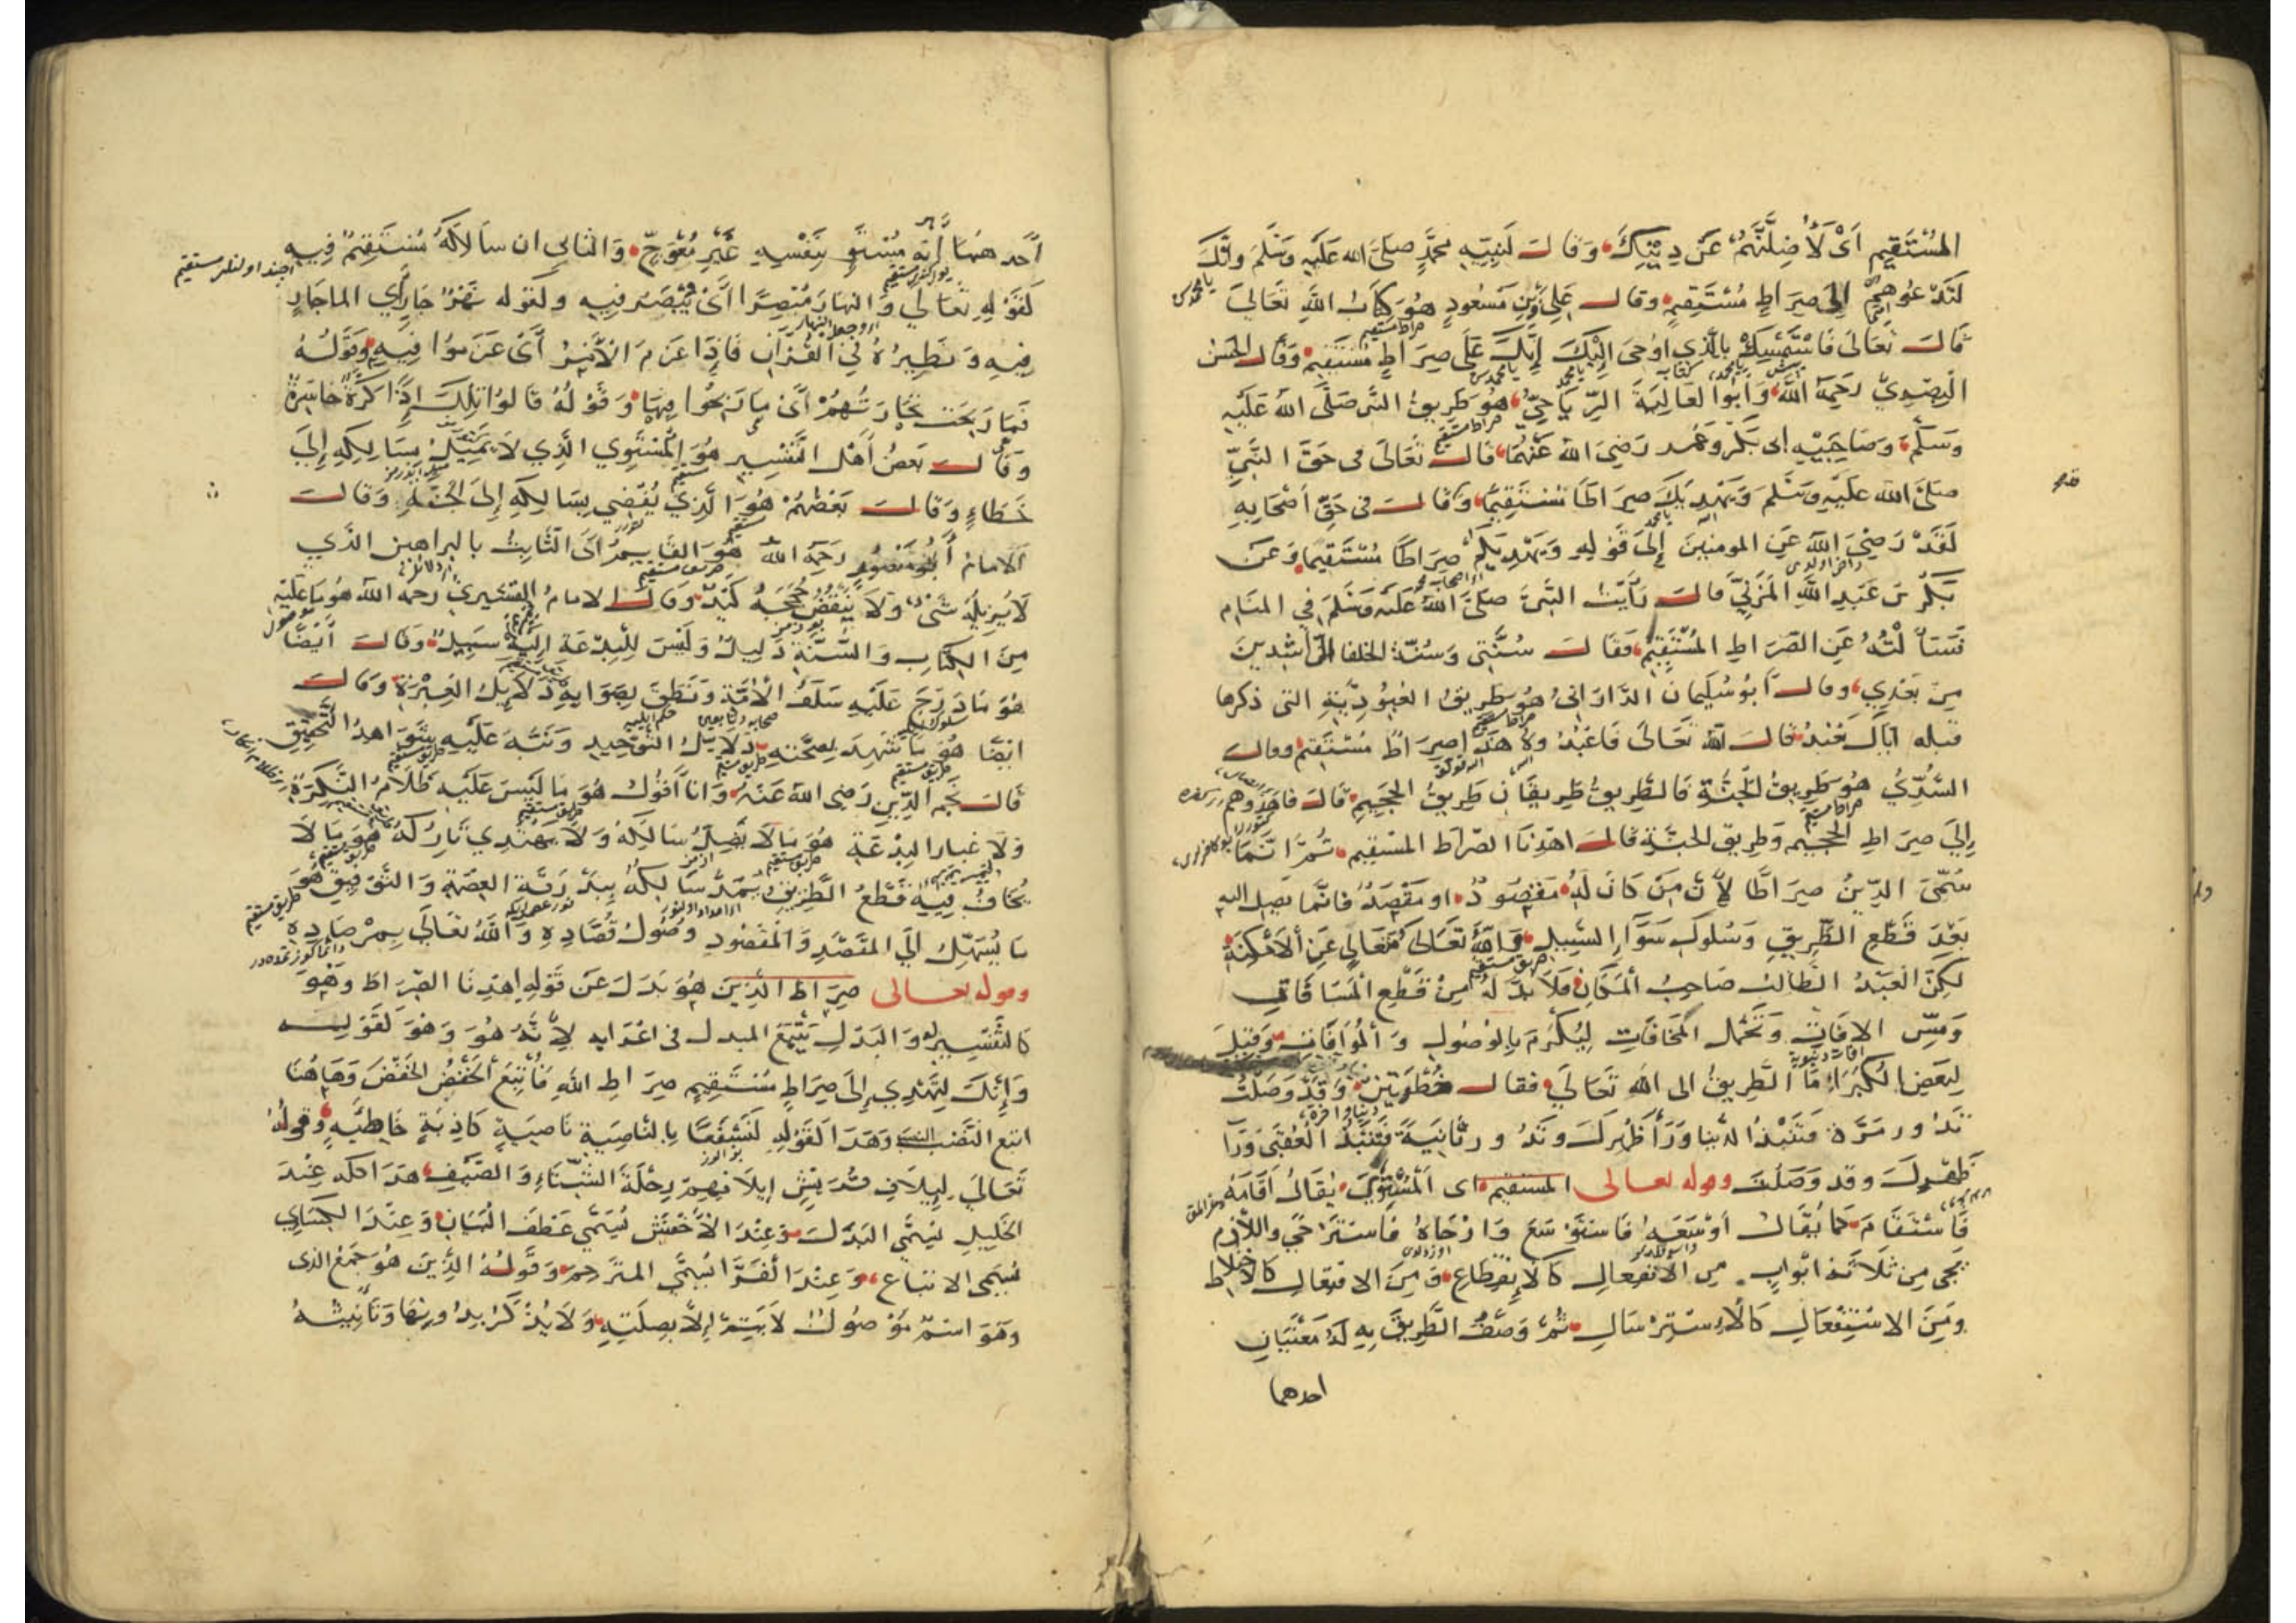 المُسْتَقِيمِ اَىْ لَأُضِلَّنَّهُمْ عَنْ دِيْنِكَ وَقَالَ لِنَبِيِّهِ مُحَمَّدٍ صَلَّى الله عَلَيْهِ وَسَلَّمَ وَاِنَّكَ
لَتَدْعُوهُمْ اِلَى صِرَاطٍ مُسْتَقِيمٍ وقال عَلِى وَابْن مَسْعُودٍ هُوَ كِتَابُ اللهِ تَعَالَى
قَالَ تَعَالَى فَاسْتَمْسِكْ بِالَّذِي اُوحِىَ اِلَيْكَ اِنَّكَ عَلَى صِرَاطٍ مُسْتَقِيم وَقَالَ الحَسَنُ
البَصْرِيّ رَحِمَهُ اللهُ وَاَبُوا العَالِيَةَ الرِّيَاحِيّ هُوَ طَرِيقُ النَّبِى صَلَّى الله عَلَيْهِ
وَسَلَّمَ وَصَاحِبَيْهِ ابى بَكْر وَعُمَر رَضِىَ الله عَنْهُمَا قَالَ تَعَالَى فى حَقِّ النَّبِيّ
صَلَّى الله عَلَيْهِ وَسَلَّم وَيَهْدِيَكَ صِرَاطًا مُسْتَقِيمًا وَقَالَ فى حَقِّ اَصْحَابِهِ
لَقَدْ رَضِىَ الله عَنِ المومنين اِلَى قَوْلِهِ وَيَهْدِيَكُمْ صِرَاطًا مُسْتَقِيمًا وَعَن
بَكْرِ بْنِ عَبْدِ اللهِ المُزَنِيّ قَالَ رَأَيْتُ النَّبِىَّ صَلَّى اللهُ عَلَيْهِ وَسَلَّمَ فِي المَنَام
فَسَأَلْتُهُ عَنِ الصِّرَاطِ المُسْتَقِيْمِ فَقَالَ سُنَّتِى وَسُنَّة الخلفا الرَّاشِدِينَ
مِنْ بَعْدِي وقالَ اَبُو سُلَيْمَانَ الدَّارَانِىُّ هُوَ طَرِيقُ العُبُوْدِيَّةِ التى ذكرها
قبله اياك نَعْبُدُ قَالَ الله تَعَالَى فَاعْبُدُوهُ هَذَا صِرَاطٌ مُسْتَقِيْمٌ وقال
السُّدِّيُّ هُوَ طَرِيقُ الجَنَّةِ فَالطَّرِيقُ طَرِيقَانِ طَرِيقُ الجَحِيمِ قَالَ فَاهْدُوهُمْ
اِلَى صِرَاطِ الجَحِيمِ وَطَرِيقُ الجَنَّةِ قَالَ اهْدِنَا الصِّرَاطَ المُسْتَقِيم ثُمَّ اِنَّمَا
سُمِّىَ الدِّيْنُ صِرَاطًا لِأَنَّ مَنْ كَانَ لَهُ مَقْصُودٌ او مَقْصَدٌ فَاِنَّمَا يَصِلُ اِلَيْهِ
بَعْدَ قَطْعِ الطَّرِيقِ وَسُلُوكِ سَوَاءِ السَّبِيلِ وَالله تَعَالَى مُتَعَالٍ عَنِ الاَمْكِنَةِ
لَكِنَّ العَبْدَ الطَّالِبَ صَاحِبُ المَكَانِ فَلَابُدَّ لَهُ مِنْ قَطْعِ المَسَافَاتِ
وَمَسِّ الافَاتِ وَتَحَمُّلِ المَخَافَاتِ لِيُكْرَمَ بِالوُصُولِ وَالمُوَافَاتِ وَقِيلَ
لِبَعْضِ الكُبَرَاءِ مَا الطَّرِيقُ الى الله تَعَالَى فقال خُطْوَتَيْنِ وَقَدْ وَصَلْتَ
تَدُورُ مَرَّةً فَتَنْبِذُ الدُّنْيَا وَرَأ ظَهْرِكَ وَتَدُورُ ثَانِيَةً فَتَنْبِذُ العُقْبَى وَرَأ
ظَهْرِكَ وقد وَصَلْتَ وقوله تعالى المستقيم اى المُسْتَوِي يُقَالُ اَقَامَهُ
فَاسْتَقَامَ كَمَا يُقَالُ اَوْسَعَهُ فَاسْتَوْسَعَ وَاَرْخَاهُ فَاسْتَرْخَى واللازم
يَجِى مِن ثَلاَثَةِ ابْوَابٍ مِن الاِنْفِعَالِ كَالاِنْقِطَاعِ وَمِنَ الافتعال كَالاِخْتِلاَط
وَمِنَ الاسْتِفْعَالِ كَالاِسْتِرْسَالِ ثُمَّ وَصْفُ الطَّرِيقِ بِهِ لَهُ مَعْنَيَانِ
احدهما
اَحَدهمَا اَنَّهُ مُسْتَوٍ بِنَفْسِهِ غَيْرِ مُعْوَجٍّ وَالثانى ان سَالِكَهُ مُسْتَقِيمٌ فِيهِ
كَقَوْلِهِ تَعَالَى وَالنهَارَ مُبْصِرًا اَىْ يُبْصَرُ فِيهِ وكقوله نَهْرٌ جَارٍ اَي الما جَارٍ
فِيهِ وَنَظِيرُهُ فِي القُرْآنِ فَاِذَا عَزَمَ الاَمْرُ اَىْ عَزَمُوا فِيهِ وَقَوْلُهُ
فَمَا رَبِحَتْ تِجَارَتُهُمْ اَىْ مَا رَبِحُوا فِيهَا وَقَوْلُهُ قَالُوا تِلْكَ اِذًا كَرَّةٌ خَاسِرَةٌ
وَقَالَ بَعْضُ اَهْلِ التَّفْسِيرِ هُوَ المُسْتَوِي الَّذِي لاَ يَمِيْلُ بِسَالِكِهِ اِلَى
خَطَاءٍ وَقَالَ بَعْضُهُمْ هُوَ الَّذِي يُفْضِي بِسَالِكِهِ اِلَى الجَنَّةِ وَقَالَ
الاِمَامُ اَبُو مَنْصُورٍ رَحِمَهُ الله هُوَ القَايِمُ اَىِ الثَّابِتُ بالبراهين الذي
لاَ يُزِيلُهُ شَىْءٌ وَلاَ يَنْقُضُ حُجَجَهُ كَيْدٌ وَقَالَ الامامُ القُشَيْرِيّ رحمه الله هُوَ مَا عَلَيْهِ
مِنَ الكِتَابِ وَالسُّنَّةِ دَلِيلٌ وَلَيْسَ لِلْبِدْعَةِ اِلَيْهِ سَبِيلٌ وَقَالَ اَيْضًا
هُوَ مَا دَرَجَ عَلَيْهِ سَلَفُ الاُمَّةِ وَنَطَقَ بِصَوَابِهِ دَلاَيِلُ العِبْرَةِ وَقَالَ
ايْضًا هُوَ مَا شَهِدَ بِصِحَّتِهِ دَلاَيِلُ التَّوْحِيدِ وَنَبَّهَ عَلَيْهِ شَوَاهِدُ التَّحْقِيقِ
قَالَ نَجْم الدِّين رَضِى الله عَنْهُ وَانا اَقُولُ هُوَ مَا لَيْسَ عَلَيْهِ ظَلاَمُ النَّكِرَةِ
وَلاَ غبار البِدْعَةِ هُوَ مَا لاَ يَضِلُّ سَالِكُهُ وَلاَ يَهْتَدِي تَارِكُهُ هُوَ مَا لاَ
يُخَافُ فِيهِ قَطْعُ الطَّرِيْقِ يُمَدُّ سَالِكُهُ بِبَدْرَقَةِ العِصْمَةِ وَالتَّوْفِيقِ هُوَ
مَا يُسَهِّلُ اِلَى المَقْصَدِ وَالمَقْصُودِ وُصُولَ قُصَّادِهِ وَاللهُ تَعَالَى بِمِرْصَادِهِ
وقوله تعالى صِرَاطَ الَّذِيْنَ هُوَ بَدَلٌ عَنْ قَوْلِهِ اِهْدِنَا الصِّرَاطَ وَهُوَ
كَالتَّفْسِيرِ لَهُ وَالبَدَلُ يَتْبَعُ المبدل فى اعْرَابِهِ لِأَنَّهُ هُوَ وَهُوَ كَقَوْلِهِ
وَاِنَّكَ لَتَهْدِي اِلَى صِرَاطٍ مُسْتَقِيمٍ صِرَاطِ اللهِ فَاُتْبِعَ الخَفْضُ الخَفْضَ وَهَاهُنَا
اتبع النَّصْبُ النصب وَهَذَا كَقَوْلِهِ لَنَسْفَعًا بِالنَّاصِيَةِ نَاصِيَةٍ كَاذِبَةٍ خَاطِئَةٍ وَقَوْلُهُ
تَعَالَى لِاِيلاَفِ قُرَيْشٍ اِيلاَفِهِمْ رِحْلَةَ الشِّتَاءِ وَالصَّيْفِ هَذَا كله عِنْدَ
الخَلِيلِ يُسَمَّى البَدَلَ وَعِنْدَ الاَخْفَشِ يُسَمَّى عَطْفَ البَيَانِ وَعِنْدَ الكِسَايى
يُسَمَّى الاتباع وَعِنْدَ الفَرَّا يُسَمَّى المترجم وَقَوْلُهُ الَّذِينَ هُوَ جَمْعُ الذى
وَهُوَ اسْمٌ مَوْصُولٌ لاَ يَتِمُّ اِلاَّ بِصِلَتِهِ وَلاَ يُذْكَرُ بِدُونِهَا وَتَأْنِيثُهُ